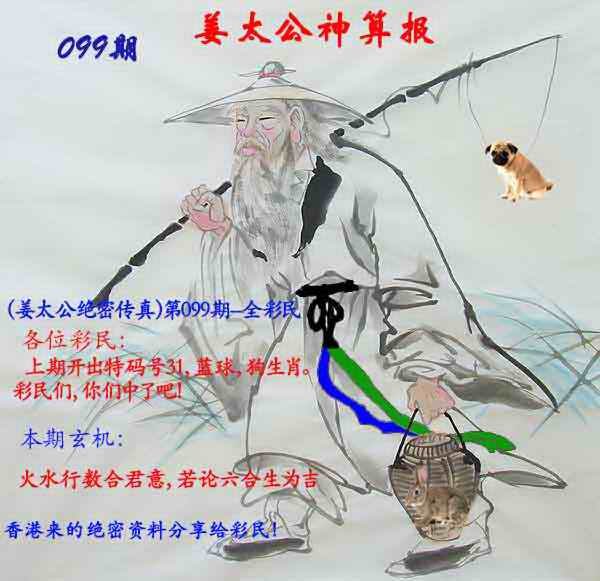 姜太公神算报
099期
(姜太公绝密传真)第099期–全彩民
各位彩民:
上期开出特码号31,蓝球,狗生肖。
彩民们,你们中了吧!
本期玄机:
火水行数合君意,若论六合生为吉
香港来的绝密资料分享给彩民!